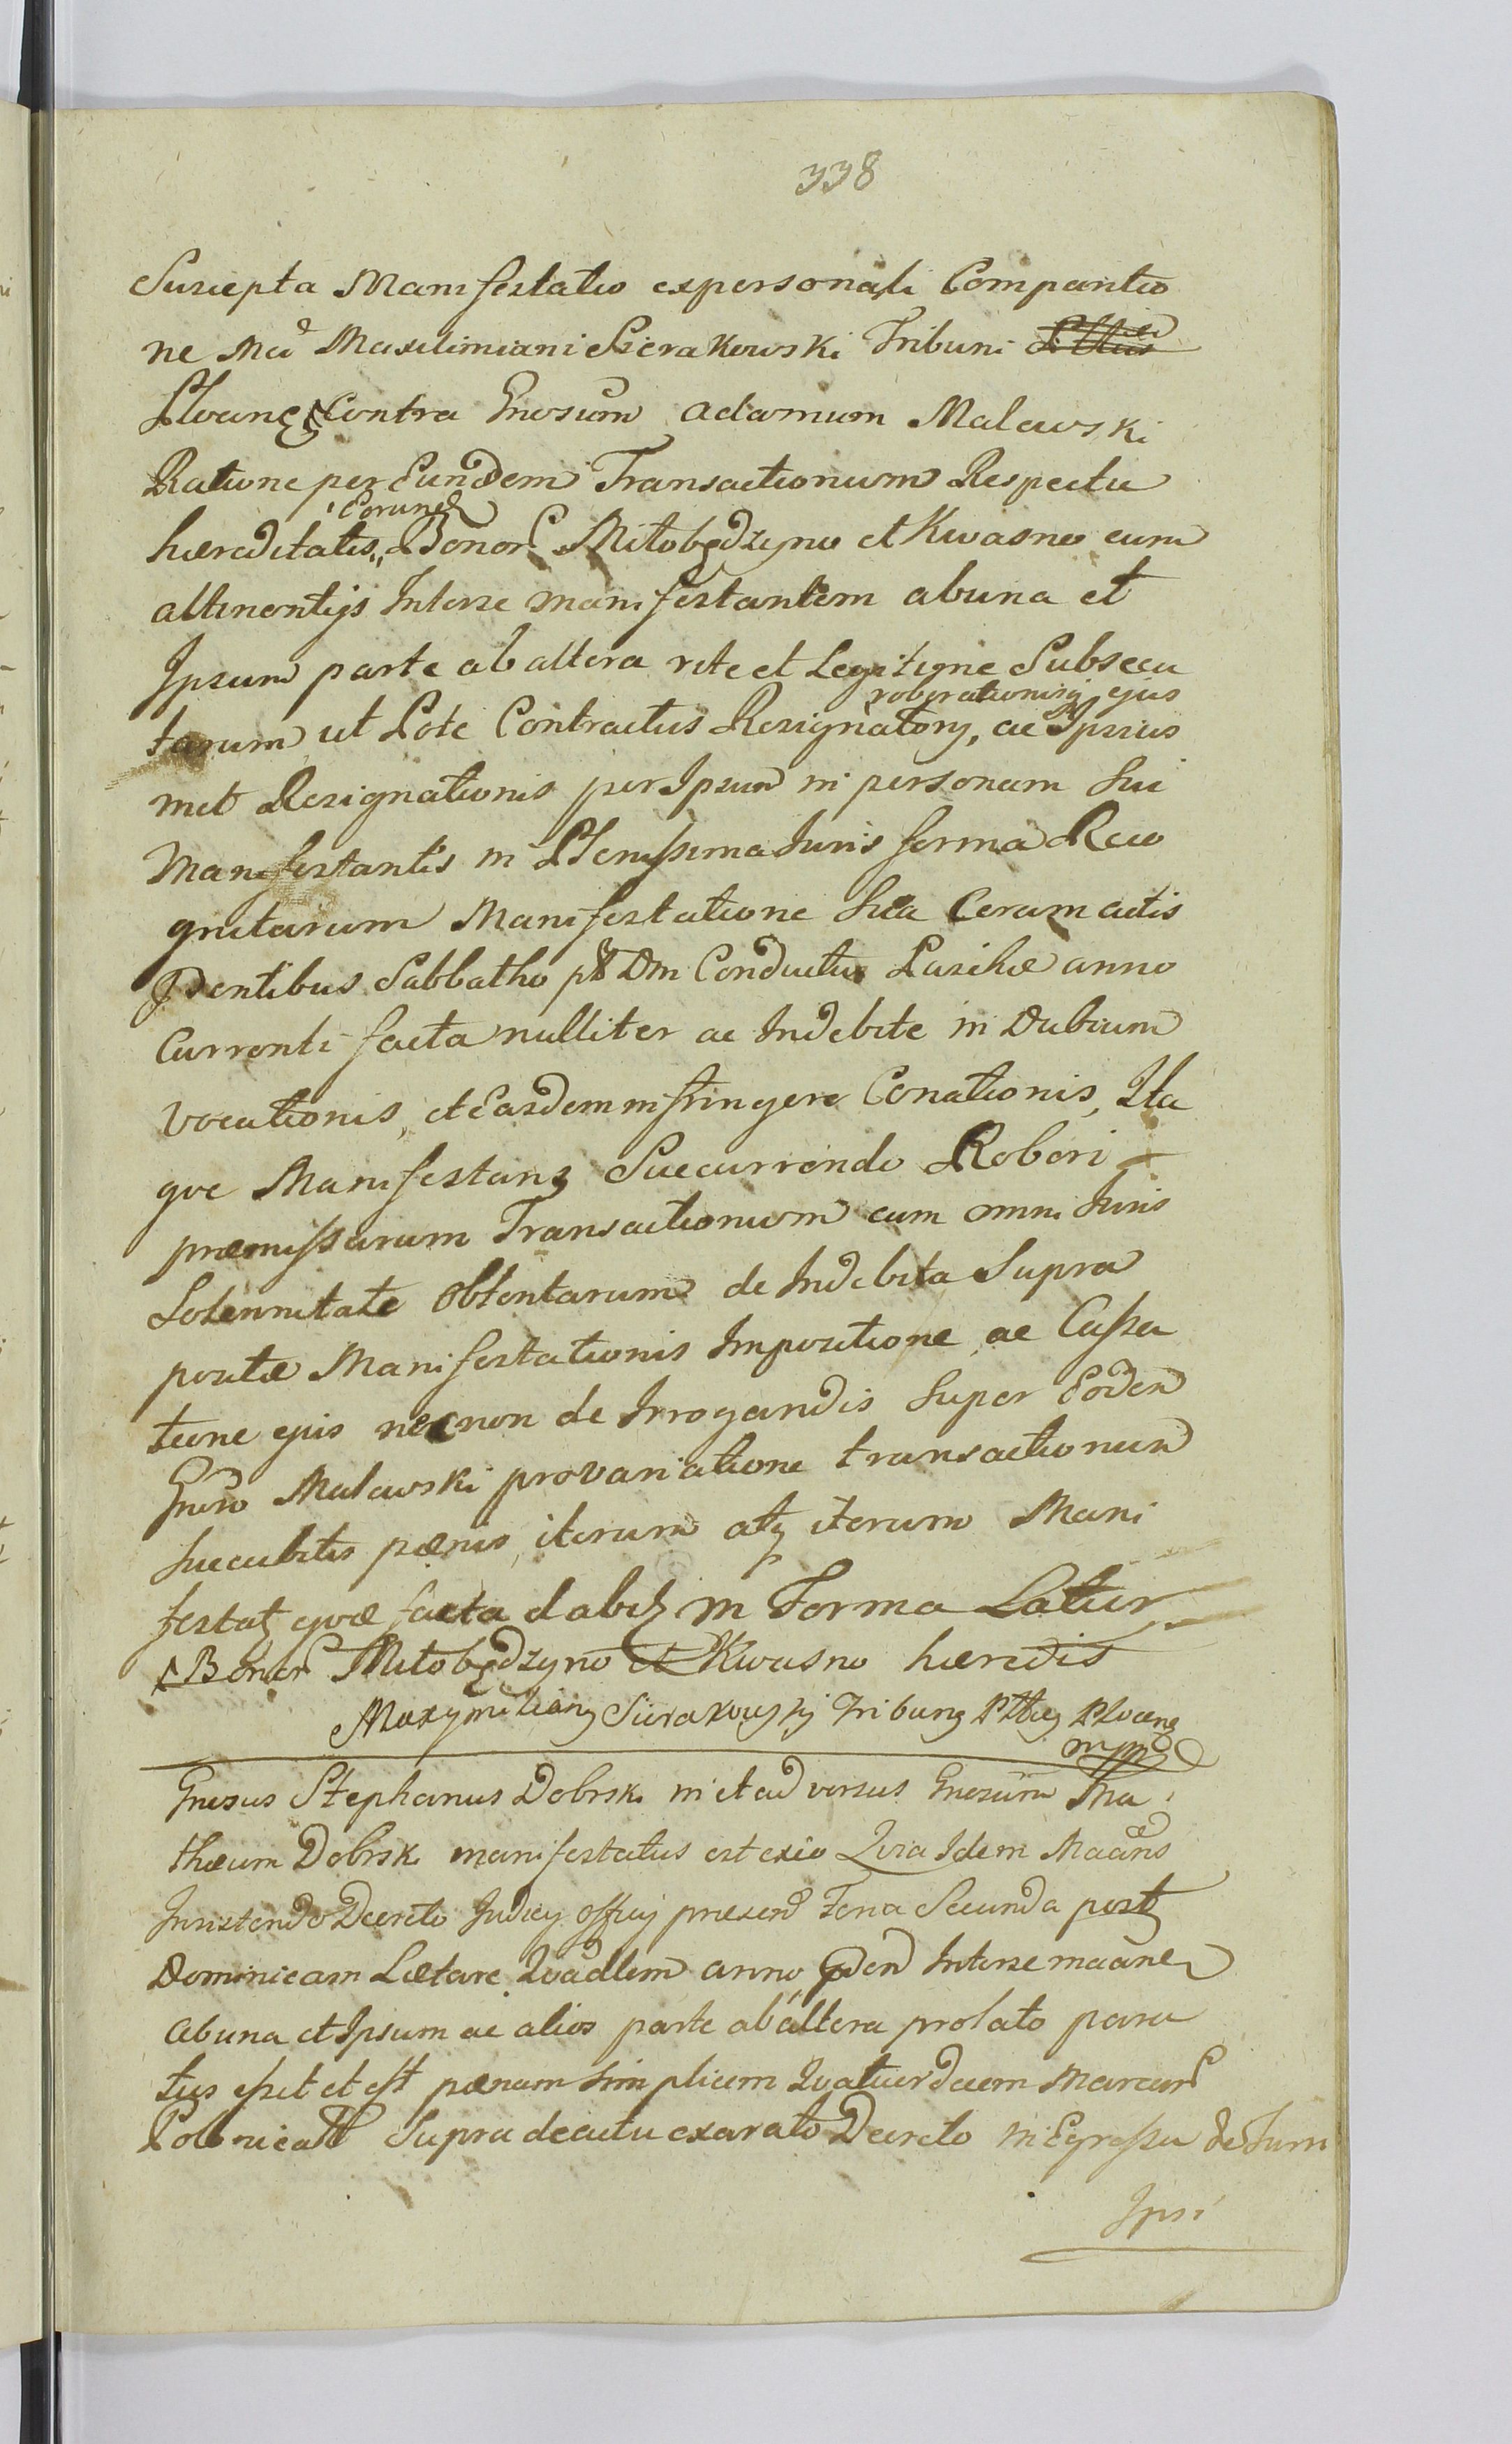 338
Suscepta Manifestatio ex personali Comparitio
ne Mci Maxilimiani Sierakowski Tribuni
Plocen Contra Gnosum Adamum Malewski
Ratione per Eundem Transactionum Respectu
hæreditatis, Eorund Bonor Miłobędzyno et Kwasno cum
attinentijs Interse manifestantem ab una et
Ipsum parte ab altera rite et Legitime Subsecu
tarum ut Pote Contractus Resignatory, roborationisq ejus ac Ipsius
met Resignationis per Ipsum in personam Sui
Manifestantis in Plenissima Juris forma Reco
gnitarum Manifestatione Sua Coram actis
Pdentibus Sabbatho pt Dm Conductus Paschæ anno
Currenti facta nulliter ac Indebite in Dubium
vocationis, et Easdem infringere Conationis, Ita
que Manifestans Succurrendo Robori
præmissarum Transactionum cum omni Juris
Solennitate Obtentarum de Indebita Supra
positæ Manifestationis Impositione ac Cassa
tione ejus necnon de Irrogandis Super Eodem
Gnoso Malewski pro variatione transactionum
succubitis pænis, iterum atq iterum Mani
festat quæ facta dabit in Forma Latiur
Bonor Miłobędzyno et Kwasno hæredis
Maxymilian Sierakowski Tribung Pttg Ploceng
mpp
Gnosus Stephanus Dobrski in et adversus Gnosum Ma
thæum Dobrski manifestatus est exio Quia Idem Maans
Insistendo Decreto Judicy Officy præsend Feria Secunda post
Dominicam Lætare Quadlem anno Eodem Interse maanem
ab una et Ipsum ac alios parte ab altera prolato para
tus esset et est pænam simplicem Quatuordecem Marcar
Polonicall Supra de actu exarato Decreto in Egressu de Turri
Ipsi